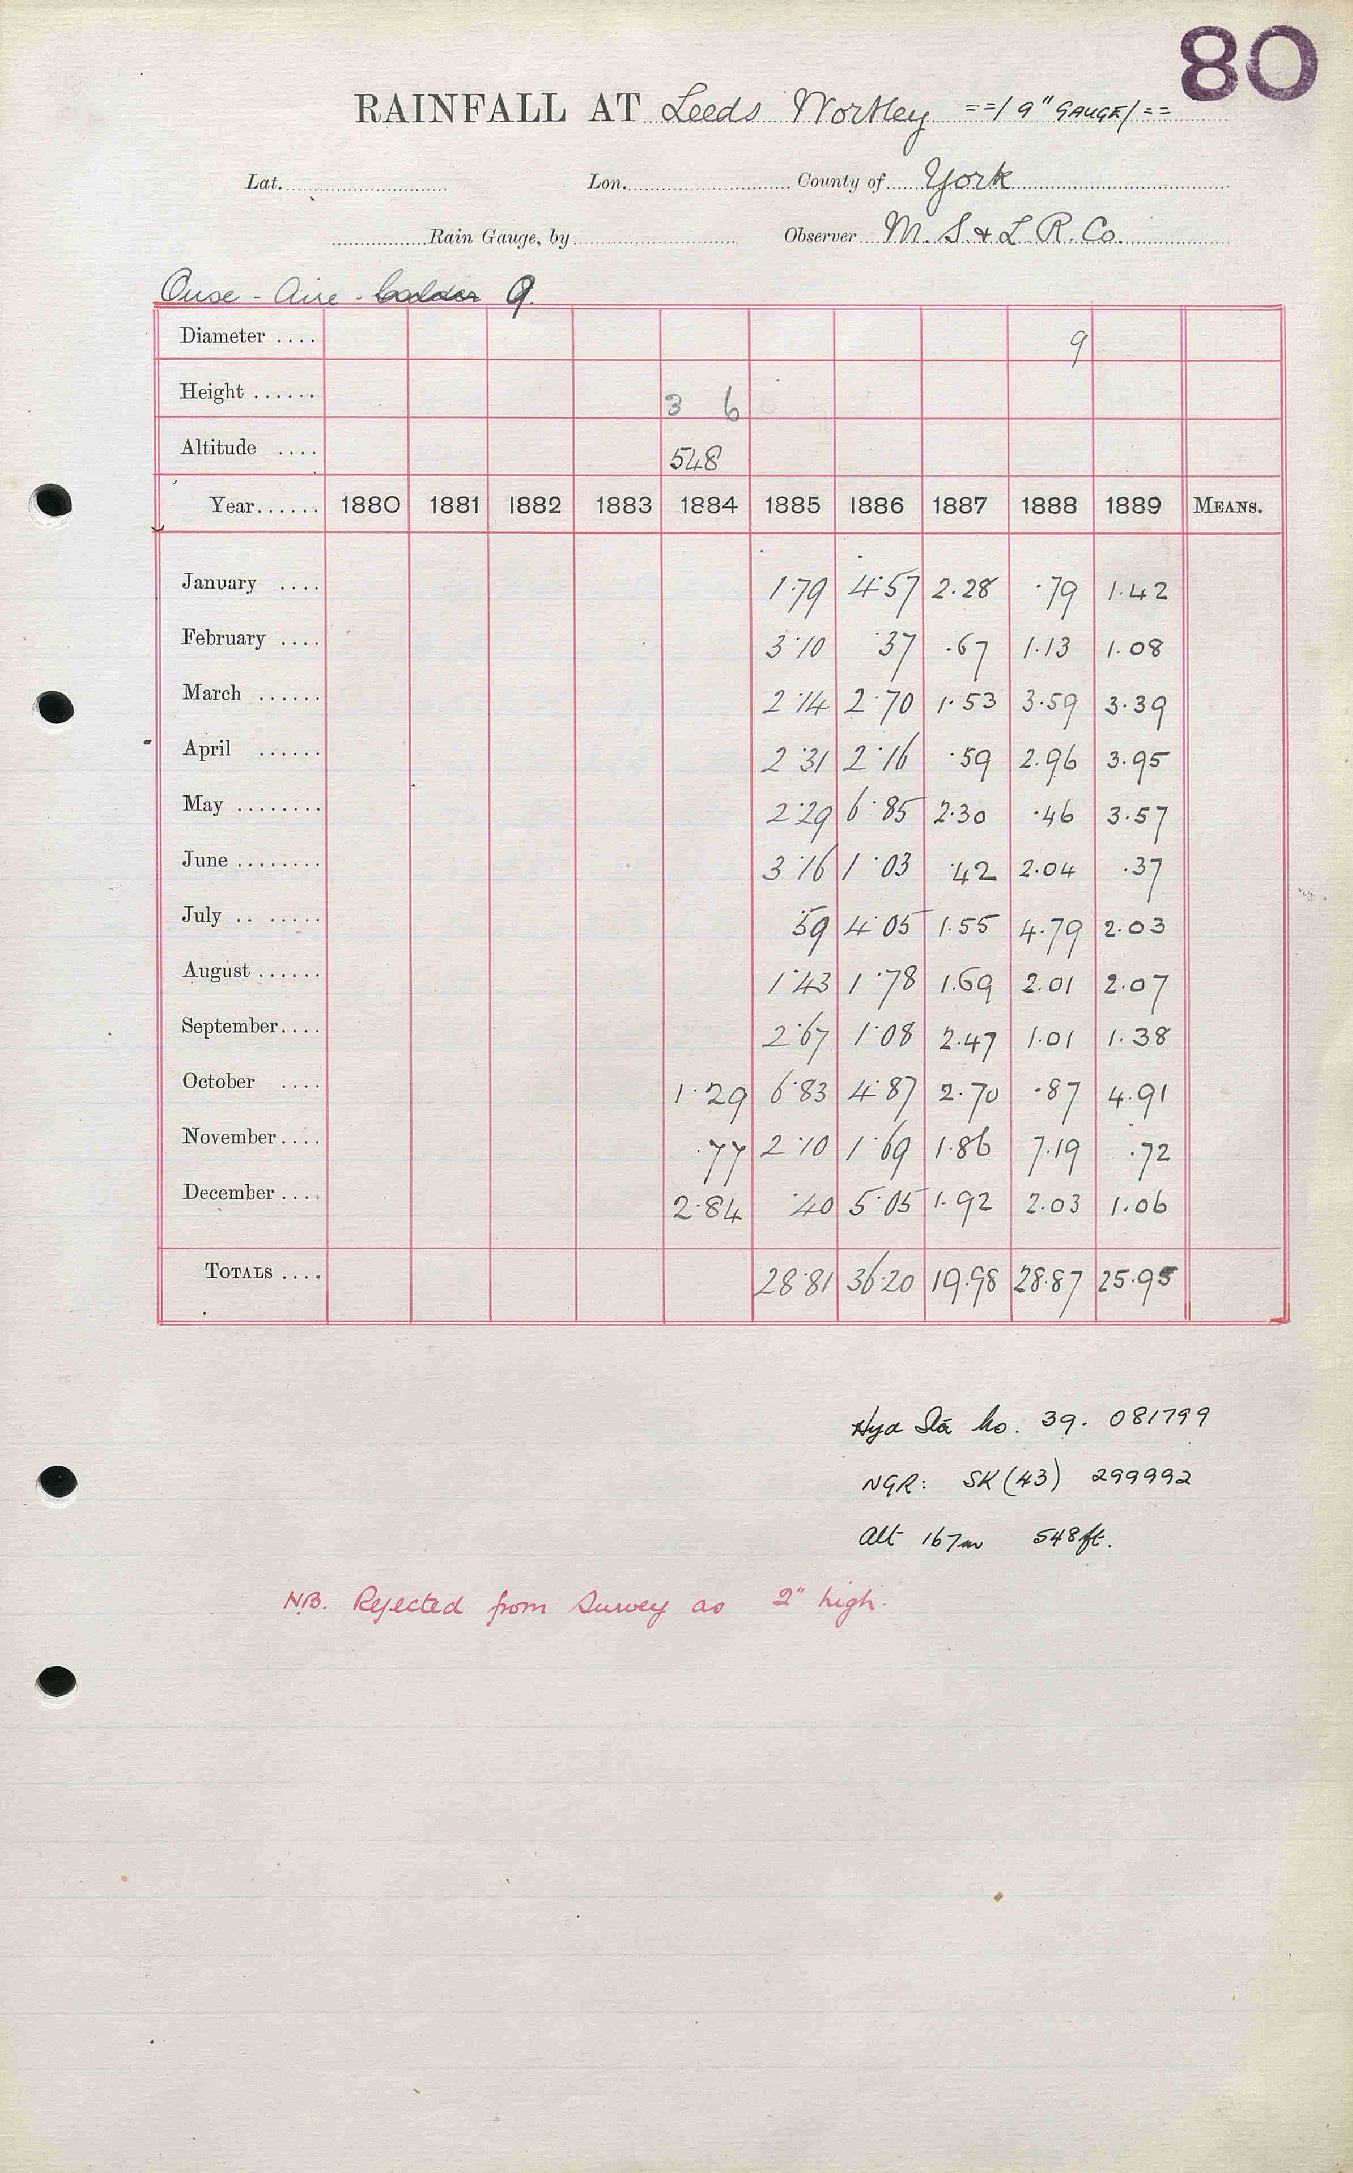 80
RAINFALL AT Leeds Wortley ==/9" GAUGE/==
Lat. Lon. County of York
Rain Gauge, by Observer M. S & L R. Co.
Ouse - Aire - Calder 9.
Diameter .... 9
Height ...... 3 6
Altitude .... 548
Year...... 1880 1881 1882 1883 1884 1885 1886 1887 1888 1889 MEANS.
January .... 1.79 4.57 2.28 .79 1.42
February .... 3.10 .37 .67 1.13 1.08
March ...... 2.14 2.70 1.53 3.59 3.39
April ...... 2.31 2.16 .59 2.96 3.95
May ........ 2.29 6.85 2.30 .46 3.57
June ........ 3.16 1.03 .42 2.04 .37
July .. ..... .59 4.05 1.55 4.79 2.03
August ...... 1.43 1.78 1.69 2.01 2.07
September.... 2.67 1.08 2.47 1.01 1.38
October .... 1.29 6.83 4.87 2.70 .87 4.91
November.... .77 2.10 1.69 1.86 7.19 .72
December .... 2.84 .40 5.05 1.92 2.03 1.06
TOTALS .... 28.81 36.20 19.98 28.87 25.95
Hyd Sta No. 39. 081799
NGR: SK (43) 299992
Alt 167m 548ft.
NB. Rejected from Survey as 2" high.